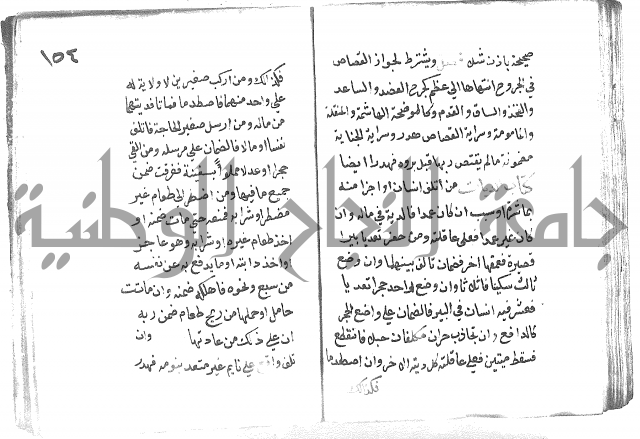 صحيحة باذن ويشترط لجواز القصاص
في الجروح انتهاها الي عظم كجرح العضد والساعد
والفخذ والساق والقدم وكالموضحة الهاشمة والمنقلة
والمامومة وسراية القصاص هدر وسراية الجناية
مضمونة مالم يقتص ربها قبل بروه فهدر ايضا
كتاب الديات من اتلف انسان او جزا منه
بماشرا وسبب ان كان عمدا فالدية في ماله وان
كان غير عمد فعلي عاقلته ومن حفر تعديا بيرا
قصيرة فعمقها اخر فضمان تالف بينهما وان وضع
ثالث سكينا فاثلاثا وان وضع واحد حجرا تعديا
فعثر فيه انسان في البير فالضمان علي واضع الحجر
كالدافع وان تجاذب حران مكلفان حبل فانقطع
فسقط ميتين فعلي عاقلة كل دية الاخر وان اصطدما
فكذلك
١٥٤
فكذلك ومن اركب صغيرين لا ولاية له
علي واحد منهما فاصطدما فماتا فديتهما
من ماله ومن ارسل صغير الحاجة فاتلف
نفسا او مالا فالضمان علي مرسله ومن القي
حجرا او عدلا مملوا بسفينة فغرقت ضمن
جميع ما فيها ومن اضطر الي طعام غير
مضطر او شرابه فمنعه حتي مات ضمنه او
اخذ طعام غيره او شرابه وهو عاجز
او اخذ دابته او ما يدفع به عن نفسه
من سبع ونحوه فاهلكه ضمنه وان ماتت
حامل او حملها من ريح طعام ضمن ربه
ان علم ذلك من عادتها وان
تلف واقع علي نايم غير متعد بنومه فهدر
جامعة النجاح الوطنية